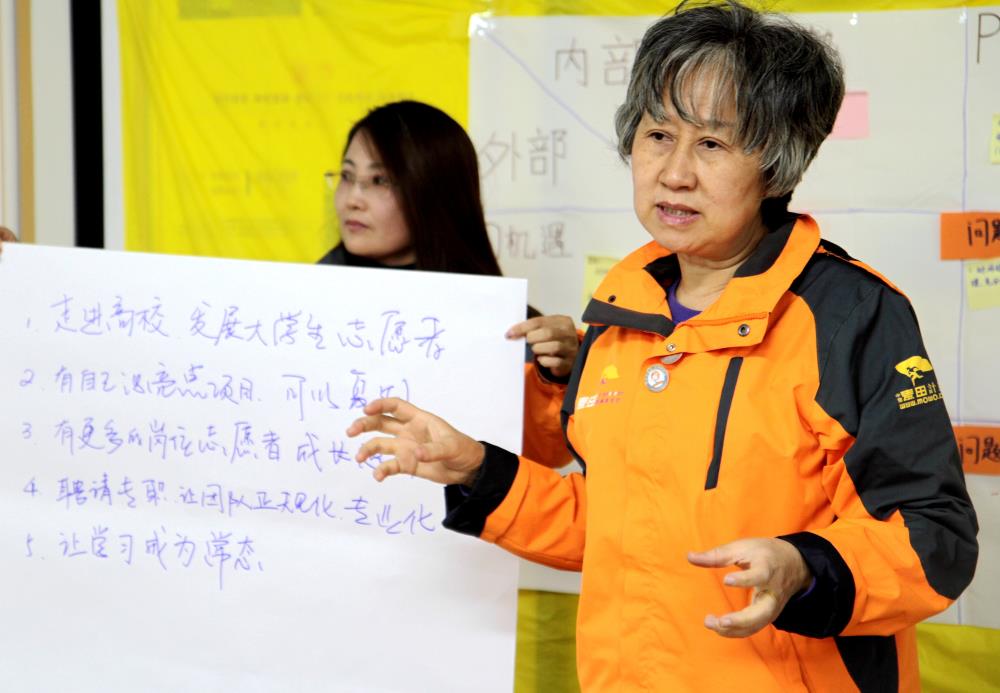 内部
P
外部
机遇
问题
问题
1. 走进高校、发展大学生志愿者
2. 有自己的亮点项目、可以复
3. 有更多的岗位志愿者成长
4. 聘请专职、让团队正规化、专业化
5. 让学习成为常态
墨田計
www.mowo.c